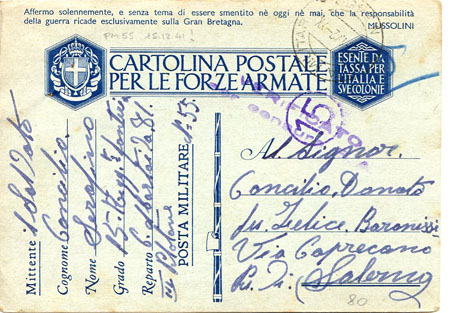 Affermo solennemente, e senza tema di essere smentito nè oggi nè mai, che la responsabilità
della guerra ricade esclusivamente sulla Gran Bretagna.
MUSSOLINI
PM 55 15.12.41!
CARTOLINA POSTALE
PER LE FORZE ARMATE
ESENTE DA
TASSA PER
L'ITALIA E
SVE COLONIE
VERIFICATO
PER CENSURA
15
Mittente il
Cognome Concilio
Nome Serafino
Grado 15
Reparto
Plotone
POSTA MILITARE N. 55
Al Signor
Concilio Donato
fu Felice Baronissi
Via Caprecano
Salerno
80